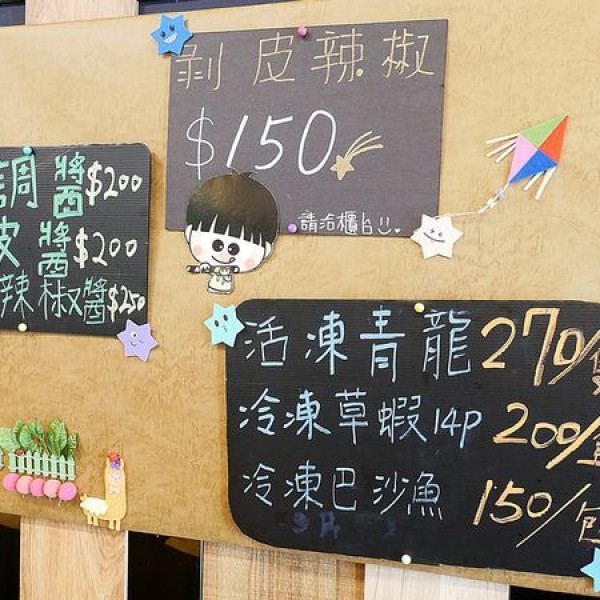 剝皮辣椒
$150
請洽櫃台
調醬$200
皮醬$200
辣椒醬$250
活凍青龍270/隻
冷凍草蝦14P 200/盒
冷凍巴沙魚150/包